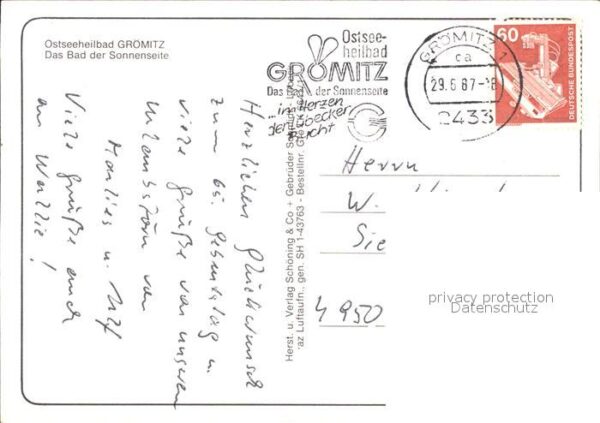 Ostseeheilbad GRÖMITZ
Das Bad der Sonnenseite
Ostsee-
heilbad
GRÖMITZ
Das der Sonnenseite
...im Herzen
der Lübecker
Bucht
GRÖMITZ 1
ca
29.6.87-18
2433
60
DEUTSCHE BUNDESPOST
Herzlichen Glückwunsch
zum 65. Geburtstag u.
viele Grüße von unserem
Urlaubsort von
Marlies u. Ulf
Viele Grüße auch
an Wallie!
Herst. u. Verlag Schöning & Co + Gebrüder Schmidt, Lübeck
az Luftaufn., gen. SH 1-43763 - Bestellnr.
Herrn
W.
Sie
4950
privacy protection
Datenschutz